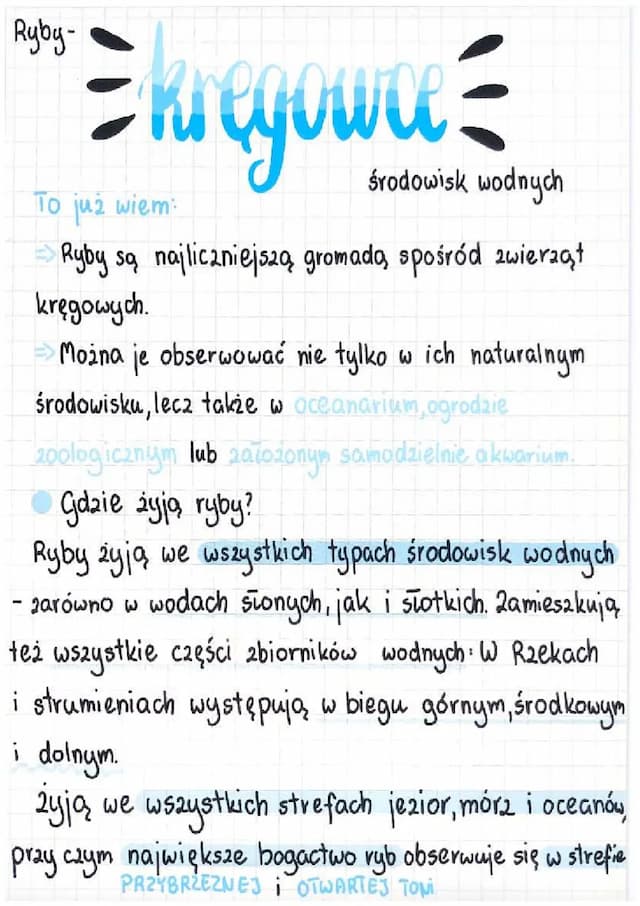 Ryby-
kręgowce
środowisk wodnych
To już wiem:
⇒ Ryby są najliczniejszą gromadą spośród zwierząt
kręgowych.
⇒ Można je obserwować nie tylko w ich naturalnym
środowisku, lecz także w oceanarium, ogrodzie
zoologicznym lub założonym samodzielnie akwarium.
Gdzie żyją ryby?
Ryby żyją we wszystkich typach środowisk wodnych
- zarówno w wodach słonych, jak i słotkich. Zamieszkują
też wszystkie części zbiorników wodnych: W Rzekach
i strumieniach występują w biegu górnym, środkowym
i dolnym.
Żyją we wszystkich strefach jezior, mórz i oceanów,
przy czym największe bogactwo ryb obserwuje się w strefie
PRZYBRZEŻNEJ i OTWARTEJ TONI